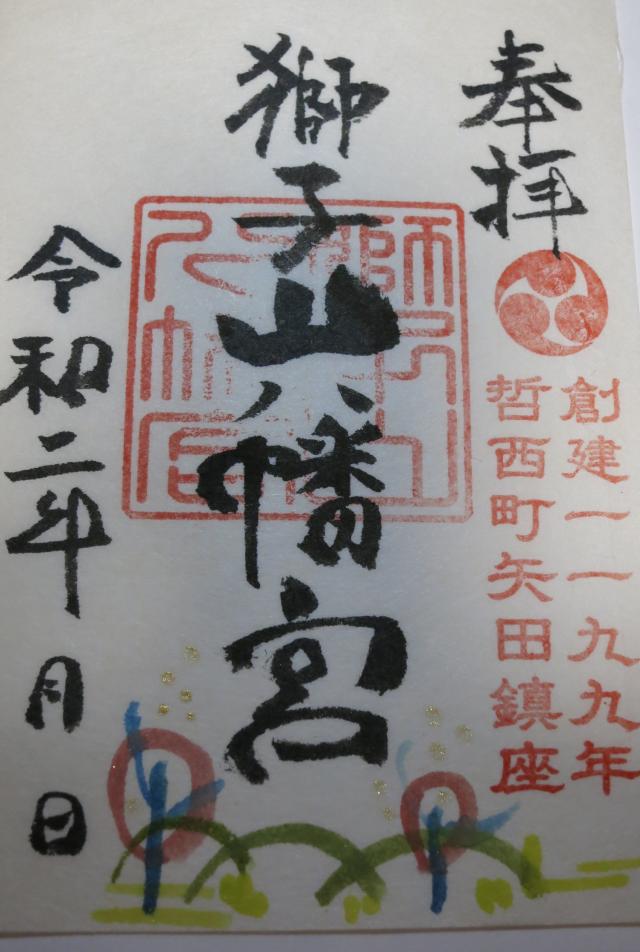 奉拝
創建一一九九年
哲西町矢田鎮座
獅子山八幡宮
令和二年 月 日